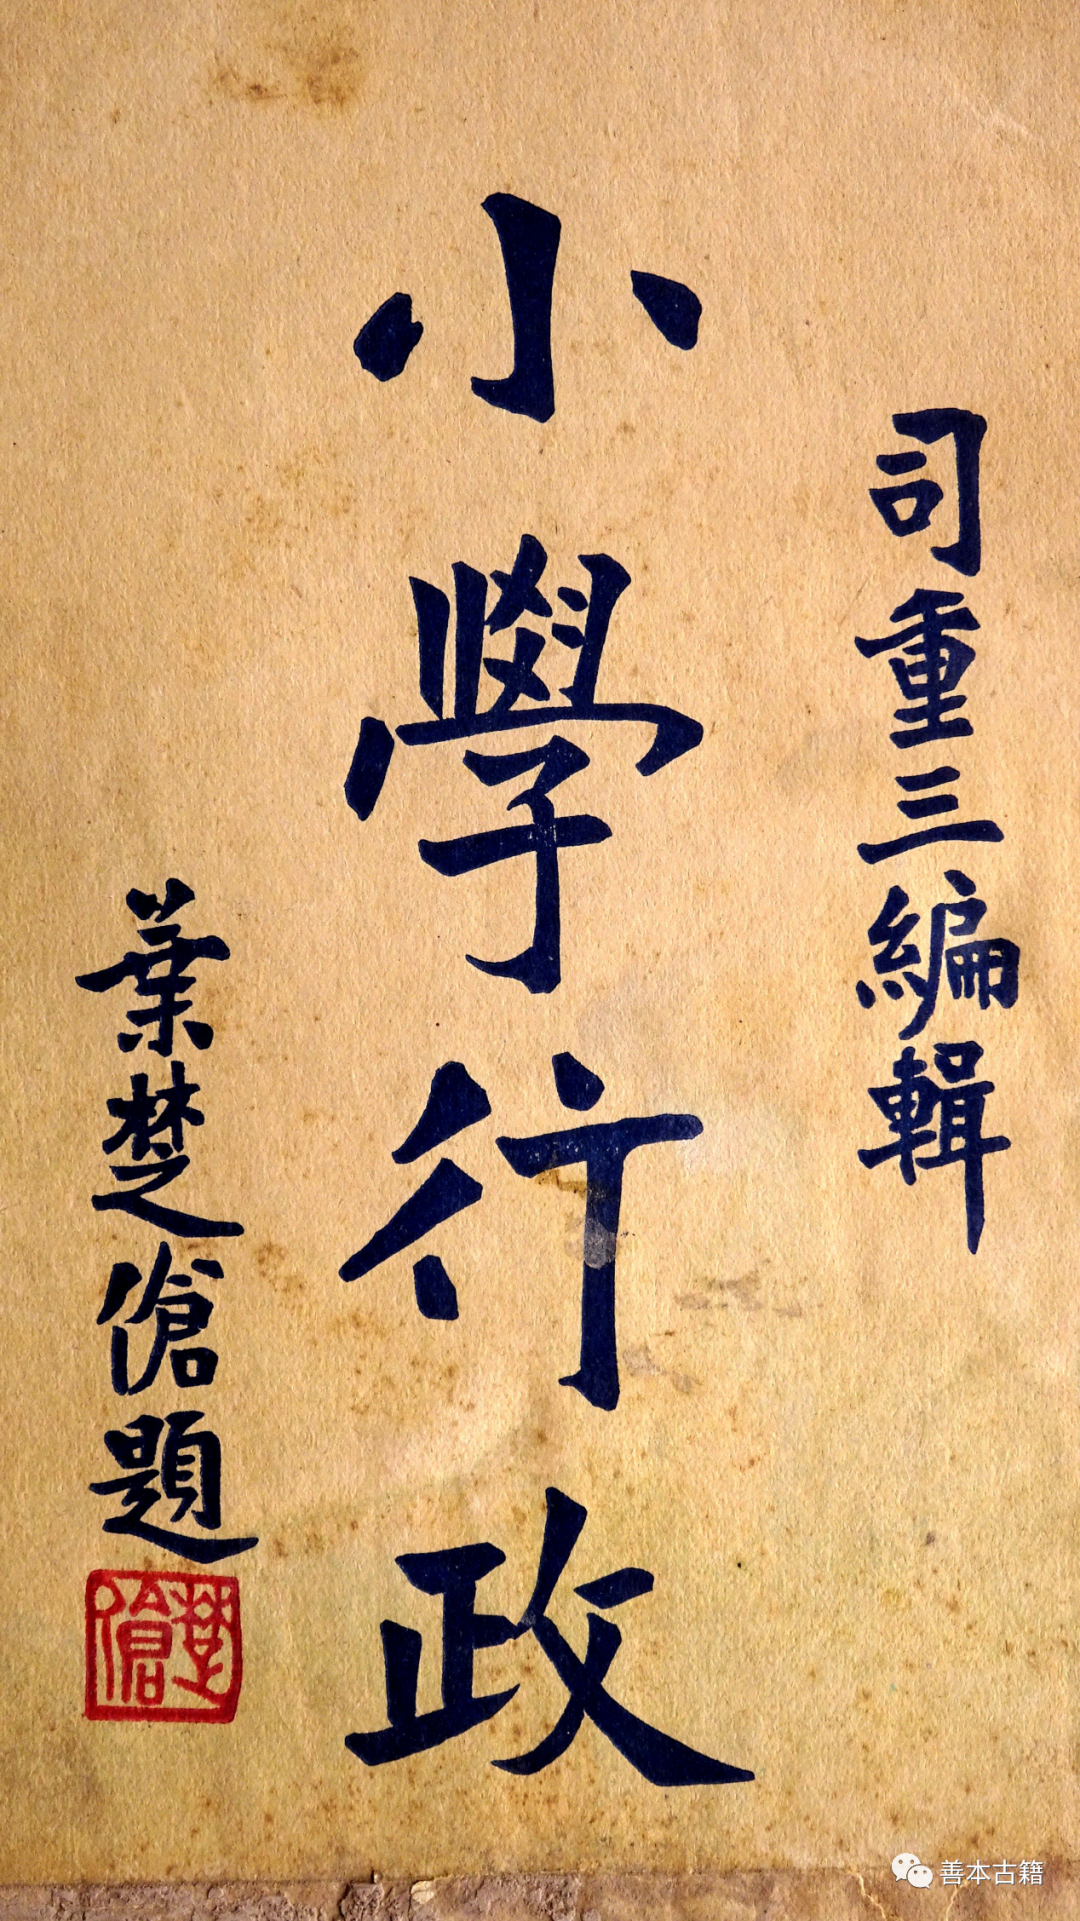 司重三編輯
小學行政
葉楚傖題
楚傖
善本古籍